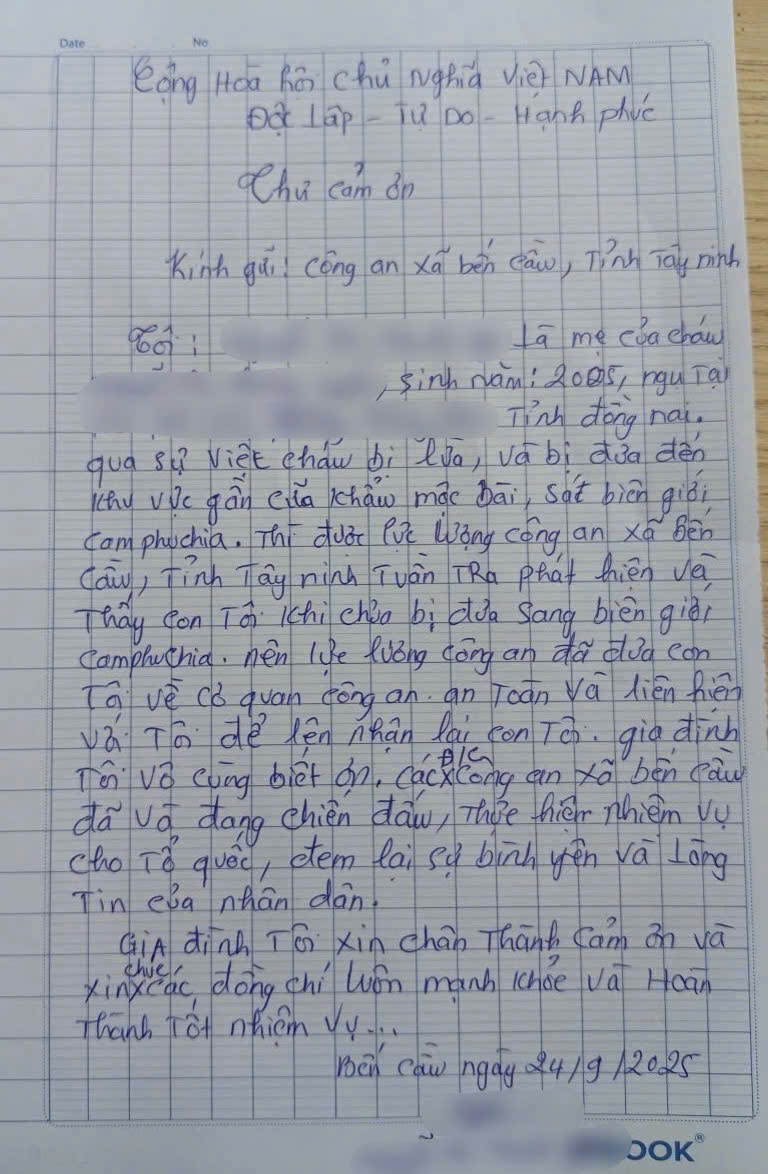 Date No
Cộng Hoà hội chủ nghĩa việt NAM
Độc lập - Tự Do - Hạnh phúc
Thư cảm ơn
Kính gửi: công an xã bến cầu, Tỉnh Tây ninh
Tôi: là mẹ của cháu
, sinh năm: 2005, ngụ Tại
Tỉnh đồng nai.
qua sự việt cháu bị lừa, và bị đưa đến
khu vực gần cửa khẩu mộc bài, sát biên giới
campuchia. Thì được lực lượng công an xã Bến
Cầu, Tỉnh Tây ninh Tuần TRa phát hiện và
Thấy con Tôi khi chưa bị đưa sang biên giới
Camphuchia. nên lực lượng công an đã đưa con
Tôi về cơ quan công an. an Toàn và liên hiên
với Tôi để lên nhận lại con Tôi. gia đình
Tôi vô cùng biết ơn. các đ/c công an xã bến cầu
đã và đang chiến đấu, thực hiện nhiệm vụ
cho Tổ quốc, đem lại sự bình yên và Lòng
Tin của nhân dân.
GiA đình Tôi xin chân Thành Cảm ơn và
xin chúc các đồng chí luôn mạnh khỏe và Hoàn
Thành Tốt nhiệm vụ...
Bến cầu ngày 24/9/2025
OOK®